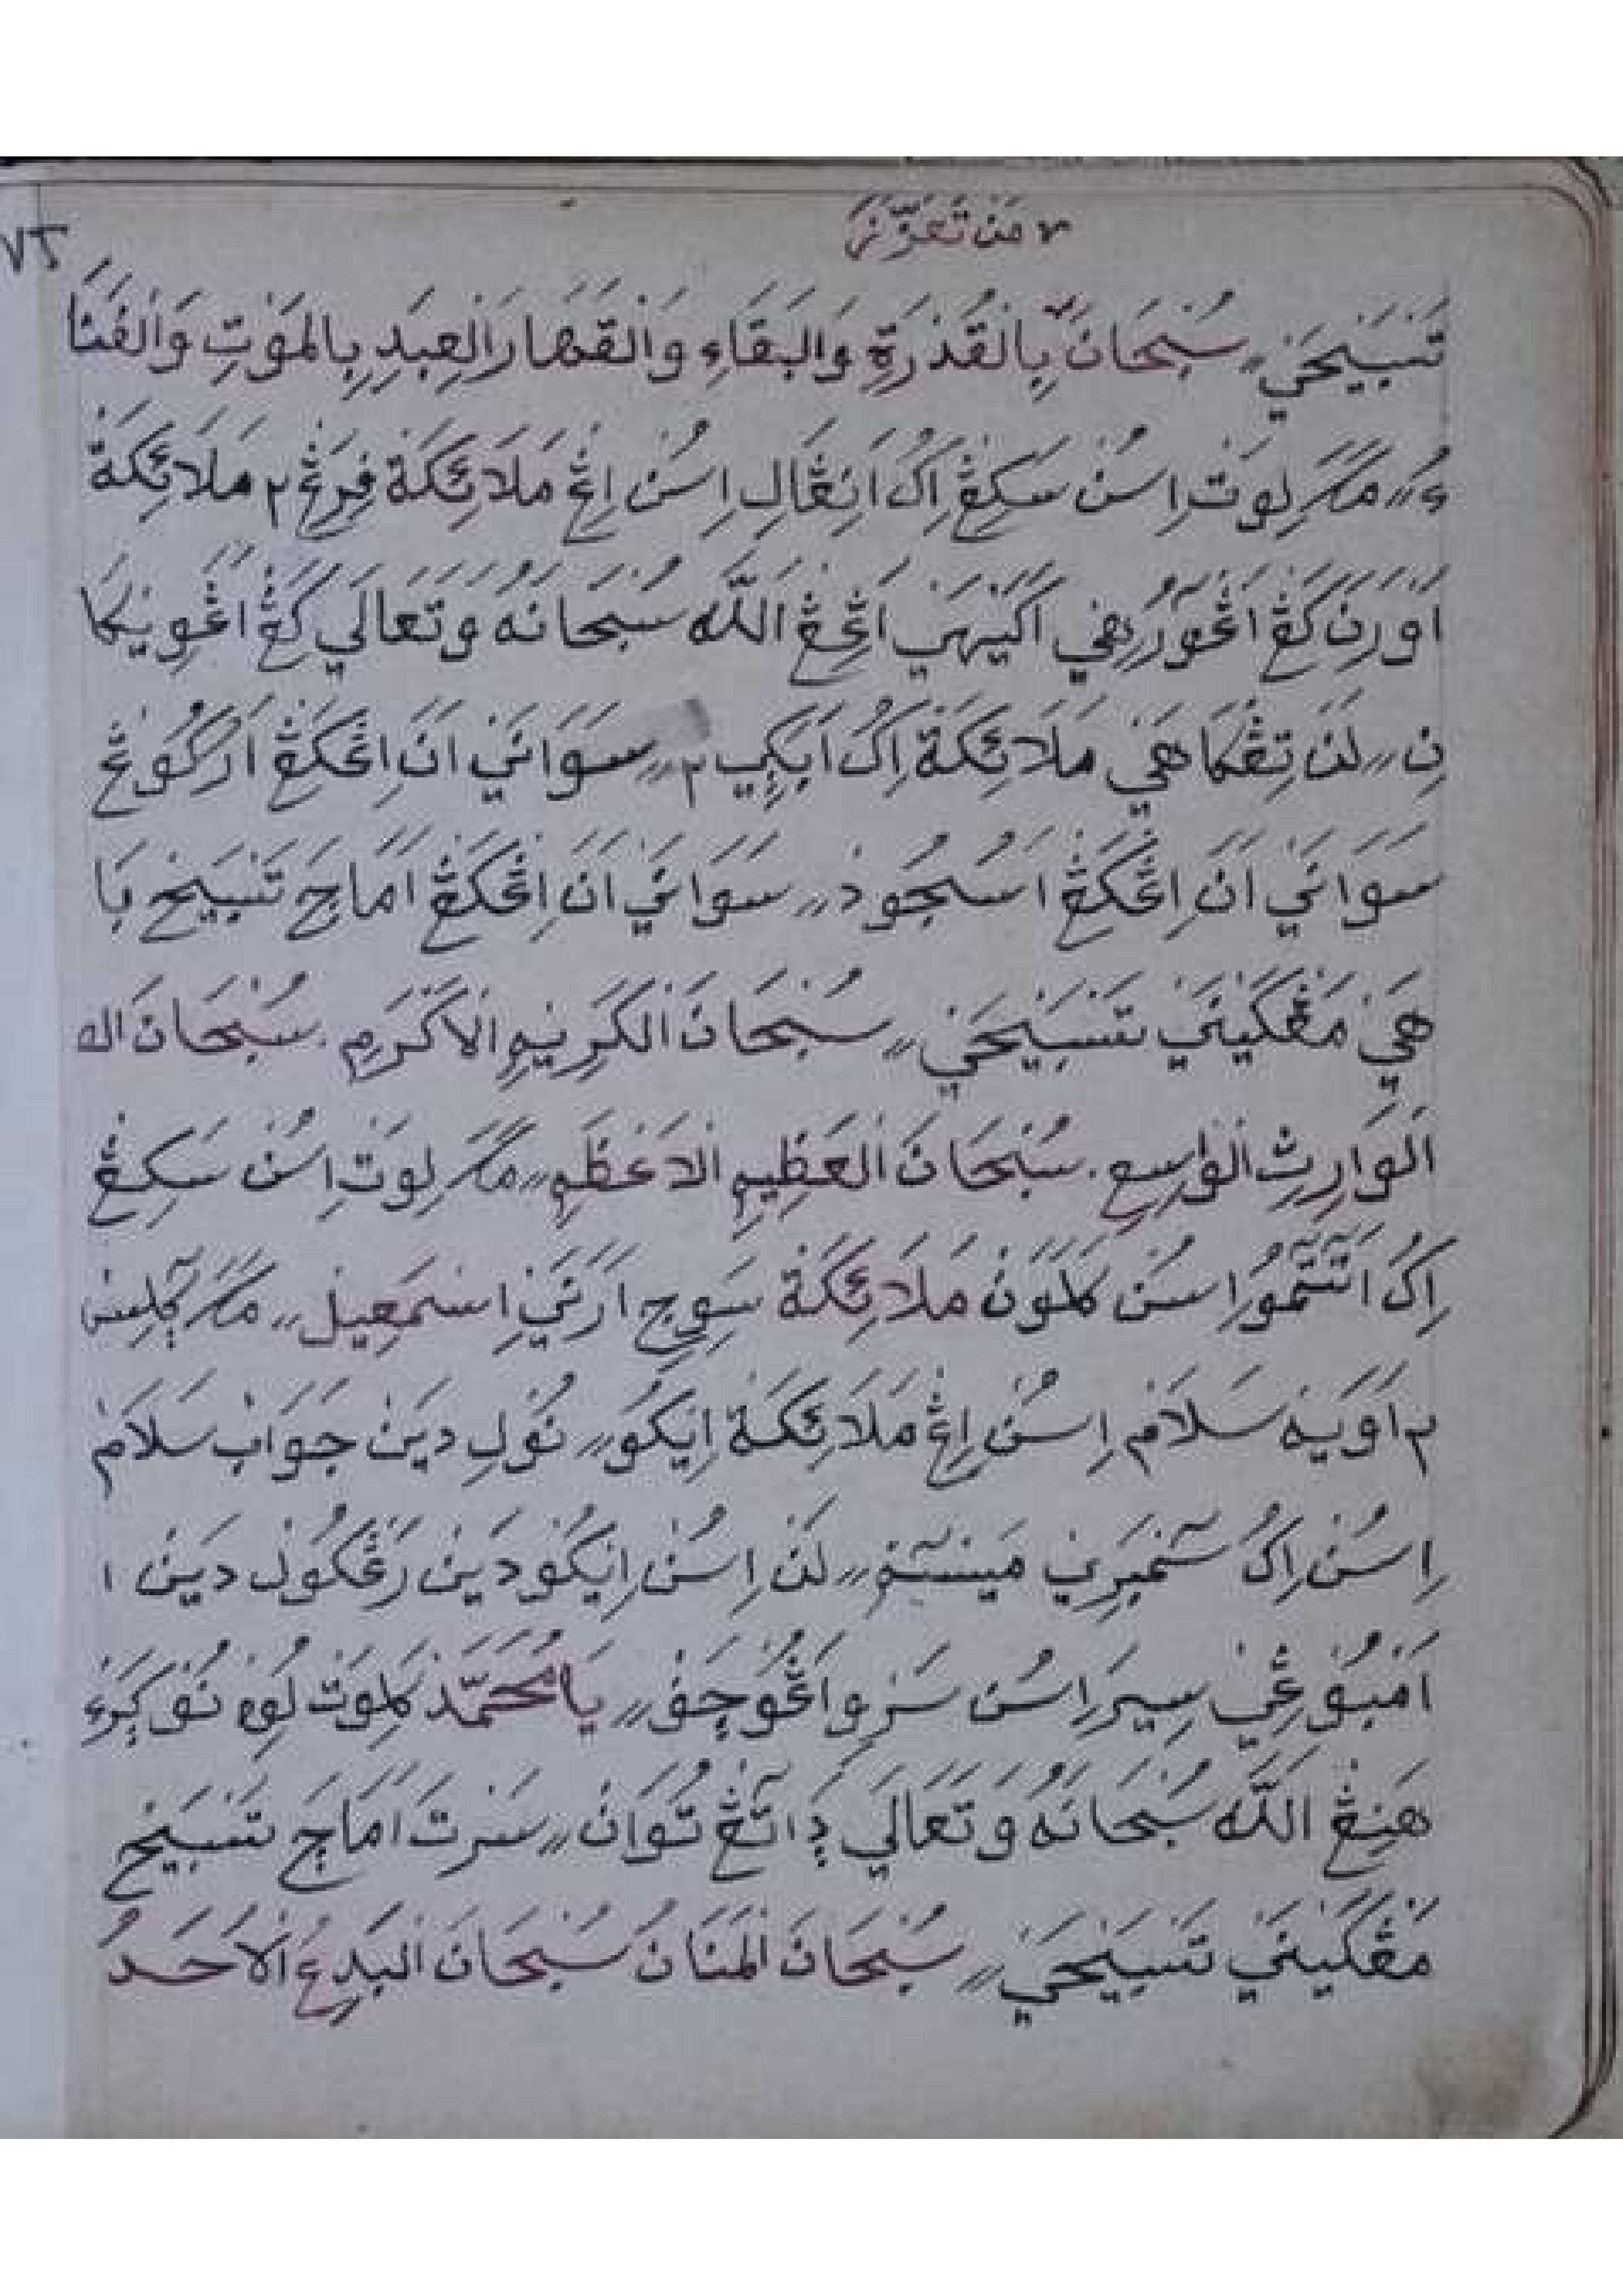 ٢ مَنْ تَعَزَّزَ
٧٢
تَسْبِيْحَيْ ⹁ سُبْحَانَ ٢ بِالْقُدْرَةِ وَالْبَقَاءِ وَالْقَهَارَالْعِبَدِ بِالْمَوْتِ وَالْفَنَا
ءُ ⹁ مَكَ لِوَتْ اِسُنْ سَكِڠْ اِكُ اَنِڠَالِ اِسُنْ اِڠْ مَلَائِكَةْ فِرَڠْ٢ مَلَائِكَةْ
اَوْرَنْ كَڠْ اَڠَوْرُهِيْ اَكَيْهَيْ اَڠِڠْ اللّٰه سُبْحَانَهُ وَتَعَالَي كَڠْ اَڠَوِيْكَا
نِ ⹁ لَنْ تِڠْكَاهَيْ مَلَائِكَةْ اِكُ اَبَكِيْ٢ ⹁ سَوَانَيْ اَنَ اِڠْكَڠْ اَرُكُوعْ
سَوَانَيْ اَنَ اِڠْكَڠْ اَسُجُودْ ⹁ سَوَانَيْ اَنَ اِڠْكَڠْ اَمَاچَ تَسْبِيْحْ بَا
هَيْ مَڠْكَيْنَيْ تَسْبِيْحَيْ ⹁ سُبْحَانَ الْكَرِيْمِ الْاَكْرَمِ . سُبْحَانَ ال
اَلْوَارِثِ الْوَاسِعِ . سُبْحَانَ الْعَظِيْمِ الْاَعْظَمِ ⹁ مَكَ لِوَتْ اِسُنْ سَكِڠْ
اِكُ اَنَتٓمُوْ اِسُنْ كَلَوَنْ مَلَائِكَةْ سَوِجِ اَرَنَيْ اِسْمَعِيْل ⹁ مَكَ ڮٓلِسْ
٢ اَوَيْهْ سَلَامْ اِسُنْ اِڠْ مَلَائِكَةْ اِيْكُوْ ⹁ نُوْلِ دَيْنْ جَوَابْ سَلَامْ
اِسُنْ اِكُ سٓمْبَرِيْ مَيْسٓمْ ⹁ لَنْ اِسُنْ اِيْكُوْ دَيْنْ رَڠْكُوْلْ دَيْنْ ا
اَمْبُوْڠَيْ سِيْرَ اِسُنْ سَرْوِ اَڠُوْچَفْ ⹁ يَا مُحَمَّدْ كَلِوَتْ لُوِهْ نُوْڮْرَءَ
هَنِڠْ اللّٰه سُبْحَانَهُ وَتَعَالَي ڊِ اَتٓڠْ تُوَانْ ⹁ سَرْتَ اَمَاچَ تَسْبِيْحْ
مَڠْكَيْنَيْ تَسْبِيْحَيْ ⹁ سُبْحَانَ الْمَنَانُ سُبْحَانَ الْبَدِعِ الْاَحَدُ